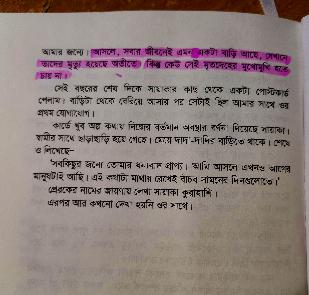 আমার জন্যে। আসলে, সবার জীবনেই এমন একটা বাড়ি আছে, যেখানে
তাদের মৃত্যু হয়েছে অতীতে। কিন্তু কেউ সেই মৃতদেহের মুখোমুখি হতে
চায় না।
সেই বছরের শেষ দিকে সায়াকার কাছ থেকে একটা পোস্টকার্ড
পেলাম। বাড়িটা থেকে বেরিয়ে আসার পর সেটাই ছিল আমার সাথে ওর
প্রথম যোগাযোগ।
কার্ডে খুব অল্প কথায় নিজের বর্তমান অবস্থার বর্ণনা দিয়েছে সায়াকা।
স্বামীর সাথে ছাড়াছাড়ি হয়ে গেছে। মেয়ে দাদা-দাদির বাড়িতে থাকে। শেষে
ও লিখেছে-
'সবকিছুর জন্যে তোমার ধন্যবাদ প্রাপ্য। আমি আসলে এখনও আগের
মানুষটাই আছি। এই কথাটা মাথায় রেখেই বাঁচব সামনের দিনগুলোতে।'
প্রেরকের নামের জায়গায় লেখা সায়াকা কুরাহাশি।
এরপর আর কখনো দেখা হয়নি ওর সাথে।